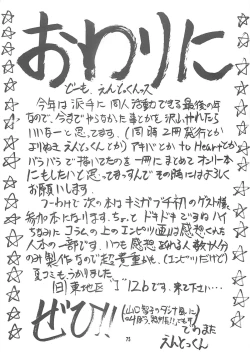 おわりに
どーも、えんどっくんっス
今年は派手に同人活動できる最後の年
なので、今までやらなかった事とかを沢山やれたら
いいなーと思ってます。(同時2冊発行とか
よりぬきえんどっくんとか)アキバとかto Heartとか
バラバラで描いてたのを一冊にまとめてオンリー本
にもしたいと思ってまっすんでその時にはよろしく
お願いします。
つーわけで次の本はキミがプチ初のゲスト様
参加本になります。ちょっとドキドキでごわすねハイ
ちなみにコラムの上のエンピツ画は感想くれた
人本の一部です。いつも感想くれる人数が分
のみ製作なので超貴重かも、(エンピツだけど)
夏コミもうかりました
(日)東地区 12bです。来て下さい…
ぜひ!!
でわまた
えんどっくん